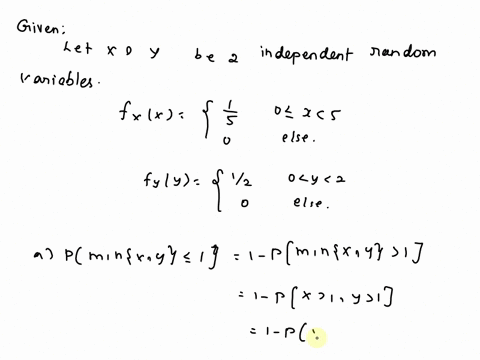 Given:
Let X & Y be 2 independent random
variables.
fx(x) = { 1/5 0 ≤ x < 5
0 else.
fy(y) = { 1/2 0 < y < 2
0 else.
a) P(min{x,y} ≤ 1] = 1-P[min{x,y} > 1]
= 1-P[x>1, y>1]
= 1-P(